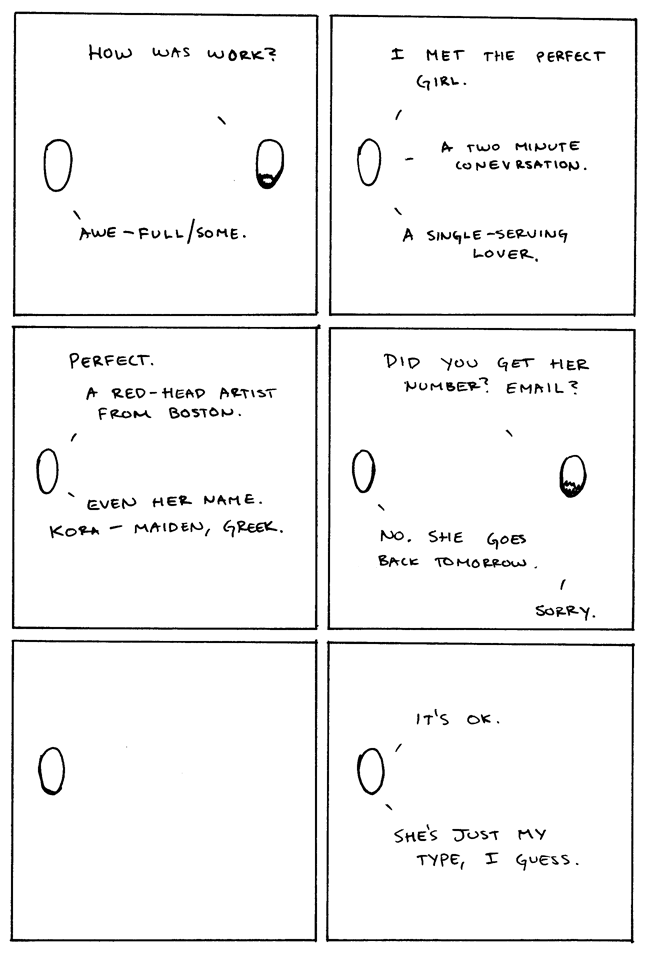 HOW WAS WORK?
AWE-FULL/SOME.
I MET THE PERFECT
GIRL.
A TWO MINUTE
CONEVRSATION.
A SINGLE-SERVING
LOVER.
PERFECT.
A RED-HEAD ARTIST
FROM BOSTON.
EVEN HER NAME.
KORA - MAIDEN, GREEK.
DID YOU GET HER
NUMBER? EMAIL?
NO. SHE GOES
BACK TOMORROW.
SORRY.
IT'S OK.
SHE'S JUST MY
TYPE, I GUESS.